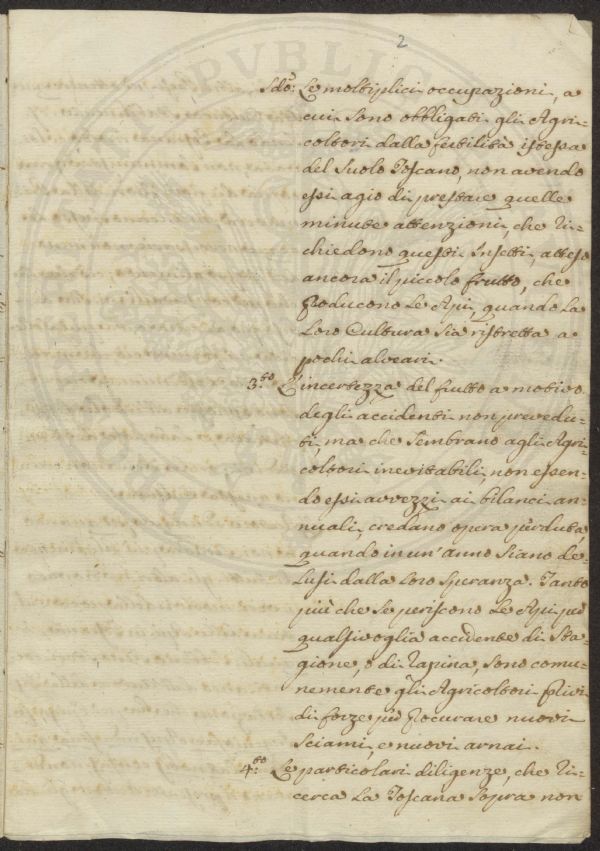 2
Sdo: Le moltiplici occupazioni, a
cui sono obbligati gli Agri=
coltori dalla fertilità istessa
del suolo Toscano, non avendo
essi agio di prestare quelle
minute attenzioni, che ri=
chiedono questi Insetti, atteso
ancora il piccolo frutto, che
producono le Api, quando la
loro Cultura sia ristretta a
pochi alveari.
3.to L'incertezza del frutto a motivo
degli accidenti non prevedu=
ti, ma che sembrano agli Agri=
coltori inevitabili, non essen=
do essi avvezzi ai bilanci an=
nuali, credano opera perduta,
quando in un'anno siano de=
lusi dalla loro speranza. Tanto
più che se periscono le Api per
qualsivoglia accidente di Sta=
gione, o di rapina, sono comu=
nemente gli Agricoltori privi
di forze per procurare nuovi
sciami, e nuovi arnai.
4.to Le particolari diligenze, che ri=
cerca la Toscana sopra non